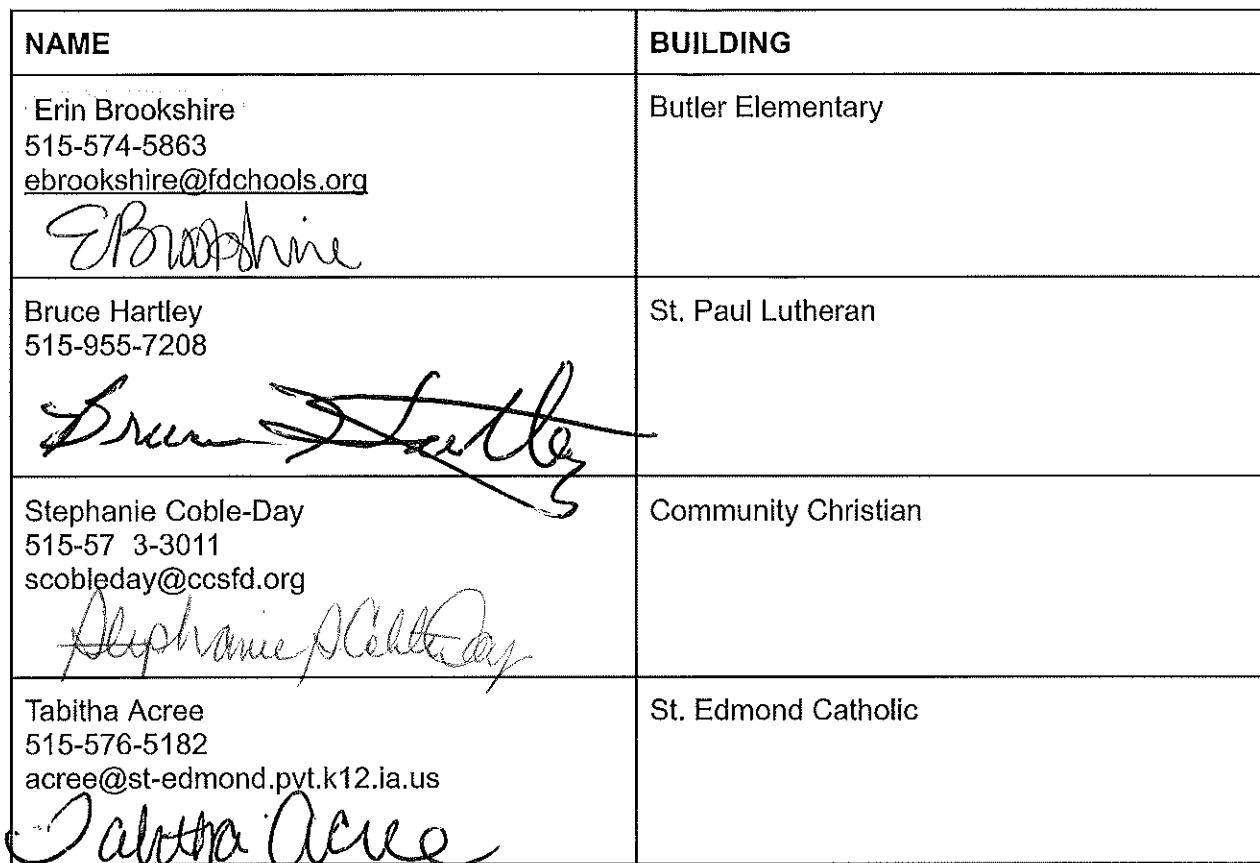 NAME
BUILDING
Erin Brookshire
515-574-5863
ebrookshire@fdchools.org
EBrookshire
Butler Elementary
Bruce Hartley
515-955-7208
Bruce Hartley
St. Paul Lutheran
Stephanie Coble-Day
515-57 3-3011
scobleday@ccsfd.org
Stephanie S Coble Day
Community Christian
Tabitha Acree
515-576-5182
acree@st-edmond.pvt.k12.ia.us
Tabitha Acree
St. Edmond Catholic